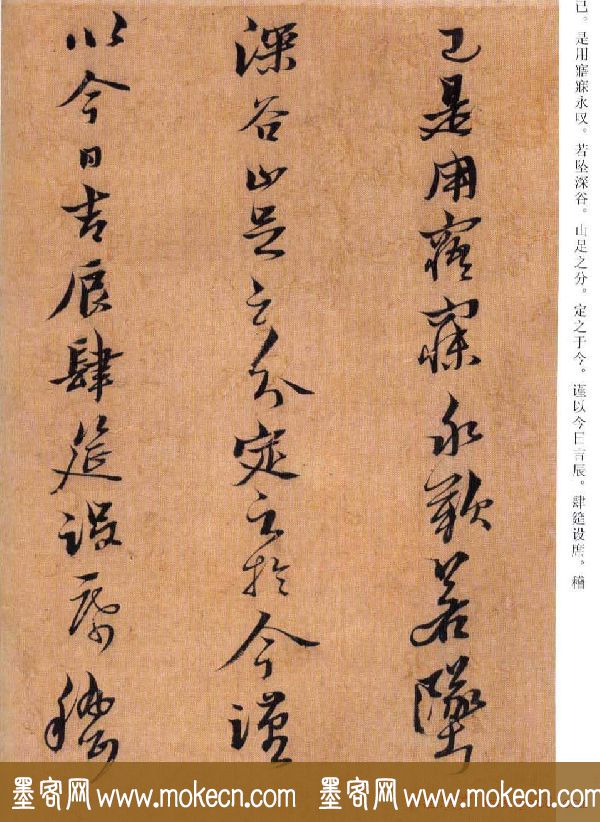 已。是用寤寐永叹。若坠深谷。山足之分。定之于今。谨以今日吉辰。肆筵设席。稽
已是用寤寐永歎若墜
深谷止足之分定之於今謹
以今日吉辰肆筵設席稽
墨客网 www.mokecn.com 墨客网 www.mokecn.com